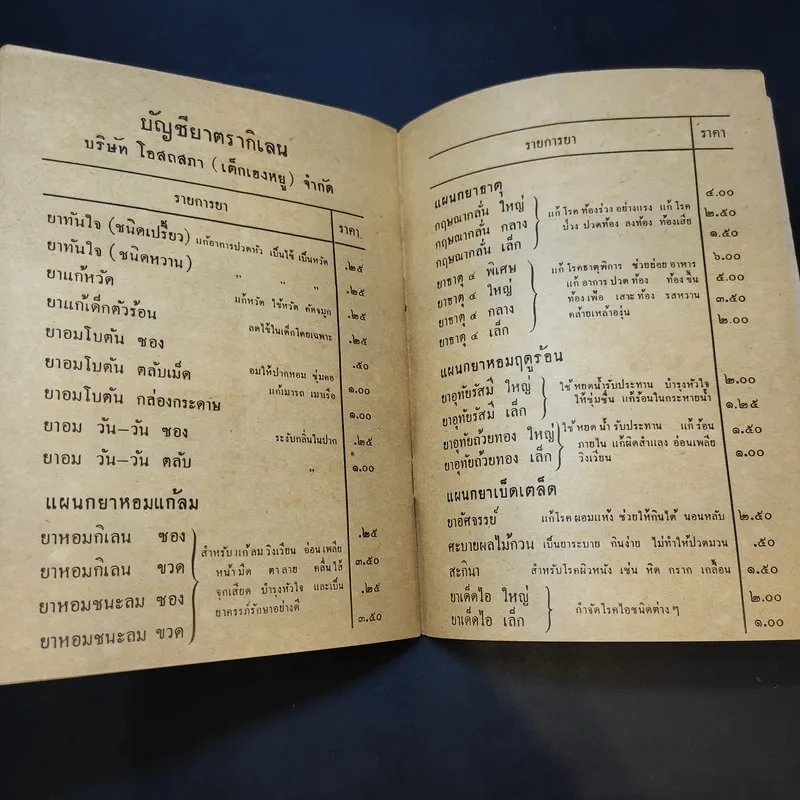 บัญชียาตรากิเลน
บริษัท โอสถสภา (เต็กเฮงหยู) จำกัด
รายการยา ราคา
ยาทันใจ (ชนิดเปรี้ยว) แก้อาการปวดหัว เป็นไข้ เป็นหวัด .๒๕
ยาทันใจ (ชนิดหวาน) ” ” ” .๒๕
ยาแก้หวัด แก้หวัด ไข้หวัด คัดจมูก .๒๕
ยาแก้เด็กตัวร้อน ลดไข้ในเด็กโดยเฉพาะ .๒๕
ยาอมโบตัน ซอง .๕๐
ยาอมโบตัน ตลับเม็ด อมให้ปากหอม ชุ่มคอ ๑.๐๐
ยาอมโบตัน กล่องกระดาษ แก้เมารถ เมาเรือ ๑.๐๐
ยาอม วัน–วัน ซอง ระงับกลิ่นในปาก .๒๕
ยาอม วัน–วัน ตลับ ” ๑.๐๐
แผนกยาหอมแก้ลม
ยาหอมกิเลน ซอง .๒๕
ยาหอมกิเลน ขวด ๓.๕๐
ยาหอมชนะลม ซอง .๒๕
ยาหอมชนะลม ขวด ๓.๕๐
สำหรับ แก้ ลม วิงเวียน อ่อน เพลีย
หน้า มืด ตา ลาย คลื่น ไส้
จุกเสียด บำรุงหัวใจ และเป็น
ยาครรภ์รักษาอย่างดี
รายการยา ราคา
แผนกยาธาตุ
กฤษณากลั่น ใหญ่ ๔.๐๐
กฤษณากลั่น กลาง ๒.๕๐
กฤษณากลั่น เล็ก ๑.๕๐
แก้ โรค ท้องร่วง อย่างแรง แก้ โรค
ป่วง ปวดท้อง ลงท้อง ท้องเสีย
ยาธาตุ ๔ พิเศษ ๖.๐๐
ยาธาตุ ๔ ใหญ่ ๕.๐๐
ยาธาตุ ๔ กลาง ๓.๕๐
ยาธาตุ ๔ เล็ก ๒.๐๐
แก้ โรคธาตุพิการ ช่วยย่อย อาหาร
แก้ อาการ ปวด ท้อง ท้อง ขึ้น
ท้อง เฟ้อ เสาะ ท้อง รสหวาน
คล้ายเหล้าองุ่น
แผนกยาหอมฤดูร้อน
ยาอุทัยรัสมี ใหญ่ ๒.๐๐
ยาอุทัยรัสมี เล็ก ๑.๒๕
ใช้ หยดน้ำรับประทาน บำรุงหัวใจ
ให้ชุ่มชื่น แก้ร้อนในกระหายน้ำ
ยาอุทัยถ้วยทอง ใหญ่ ๑.๕๐
ยาอุทัยถ้วยทอง เล็ก ๑.๐๐
ใช้ หยด น้ำ รับประทาน แก้ ร้อน
ภายใน แก้ผิดสำแลง อ่อนเพลีย
วิงเวียน
แผนกยาเบ็ดเตล็ด
ยาอัศจรรย์ แก้โรค ผอมแห้ง ช่วยให้กินได้ นอนหลับ ๒.๕๐
ศะบายผลไม้กวน เป็นยาระบาย กินง่าย ไม่ทำให้ปวดมวน .๕๐
สะกินา สำหรับโรคผิวหนัง เช่น หิด กราก เกลื้อน ๑.๕๐
ยาเด็ดไอ ใหญ่ ๒.๐๐
ยาเด็ดไอ เล็ก ๑.๐๐
กำจัดโรคไอชนิดต่าง ๆ